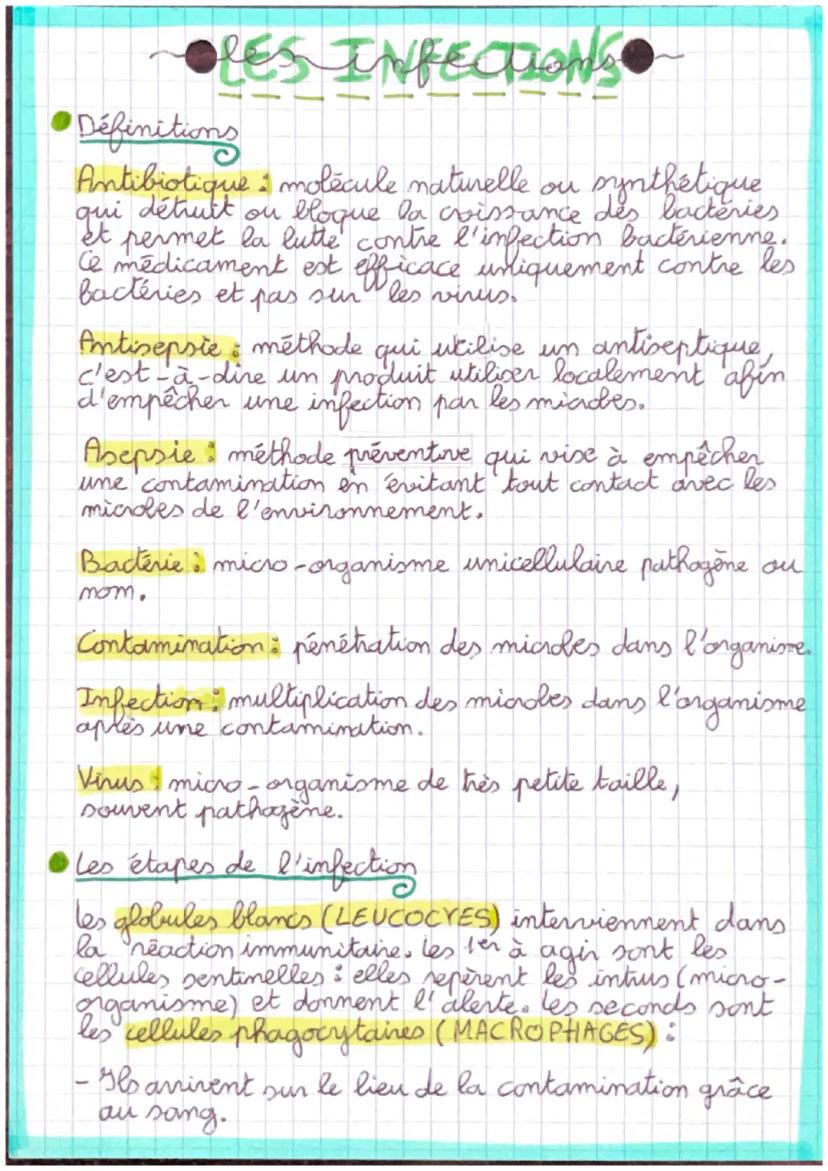 LES INFECTIONS
les infections
Définitions
Antibiotique : molécule naturelle ou synthétique
qui détruit ou bloque la croissance des bactéries
et permet la lutte contre l'infection bactérienne.
Ce médicament est efficace uniquement contre les
bactéries et pas sur les virus.
Antisepsie : méthode qui utilise un antiseptique,
c'est-à-dire un produit utiliser localement afin
d'empêcher une infection par les microbes.
Asepsie : méthode préventive qui vise à empêcher
une contamination en évitant tout contact avec les
microbes de l'environnement.
Bactérie : micro-organisme unicellulaire pathogène ou
non.
Contamination : pénétration des microbes dans l'organisme.
Infection : multiplication des microbes dans l'organisme
après une contamination.
Virus : micro-organisme de très petite taille,
souvent pathogène.
Les étapes de l'infection
Les globules blancs (LEUCOCYES) interviennent dans
la réaction immunitaire. Les 1er à agir sont les
cellules sentinelles : elles repèrent les intrus (micro-
organisme) et donnent l'alerte. Les seconds sont
les cellules phagocytaires (MACROPHAGES) :
- Ils arrivent sur le lieu de la contamination grâce
au sang.